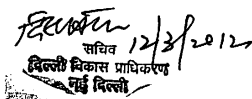 12/3/2012
सचिव
दिल्ली विकास प्राधिकरण
नई दिल्ली